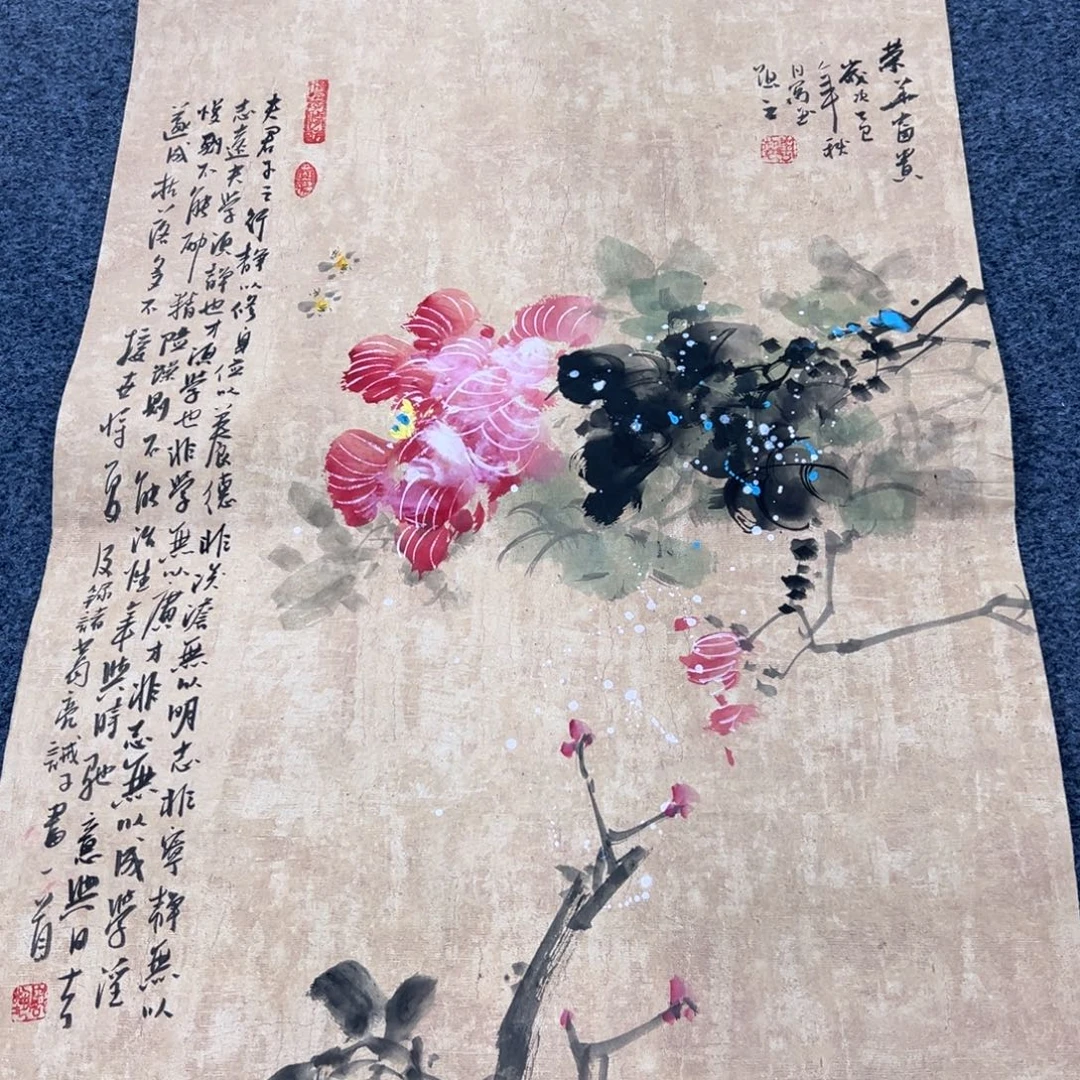 荣华富貴
歲次乙巳
年秋
日寫並
題之
夫君子之行靜以修身儉以養德非淡澹無以明志非寧靜無以
志遠夫学須静也才須学也非学無以廣才非志無以成學淫
慢則不能研精險躁則不能治性年與時馳意與日去
遂成枯落多不接世将曷及録諸葛亮誡子書一首